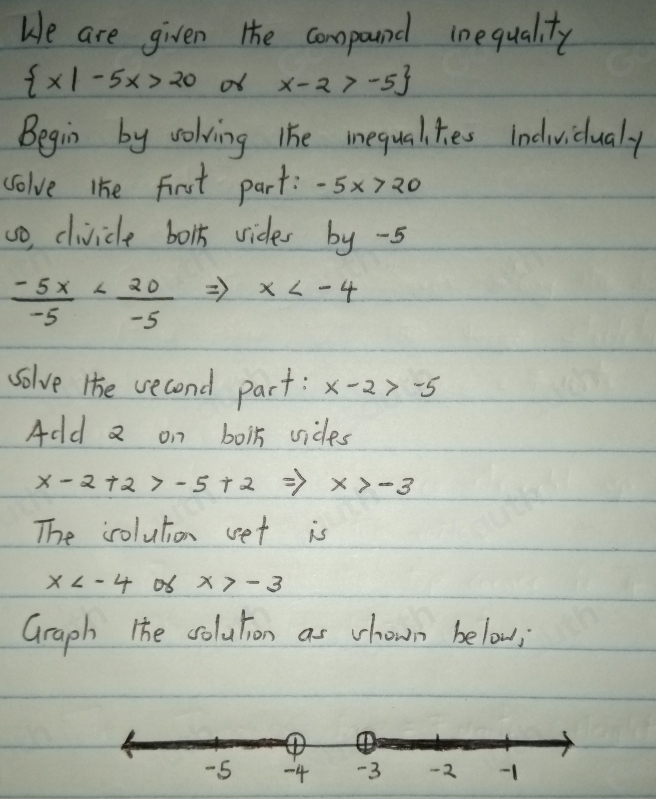 We are given the compound inequality
{x | -5x > 20 or x-2 > -5}
Begin by solving the inequalities individualy
solve the first part: -5x > 20
so, divide both sides by -5
-5x/-5 < 20/-5 ⇒ x < -4
solve the second part: x-2 > -5
Add 2 on both sides
x-2+2 > -5+2 ⇒ x > -3
The solution set is
x < -4 or x > -3
Graph the solution as shown below;
-5 -4 -3 -2 -1